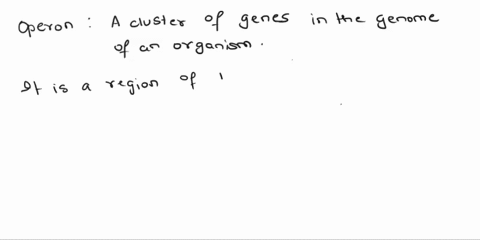 Operon : A cluster of genes in the genome
of an organism.
It is a region of